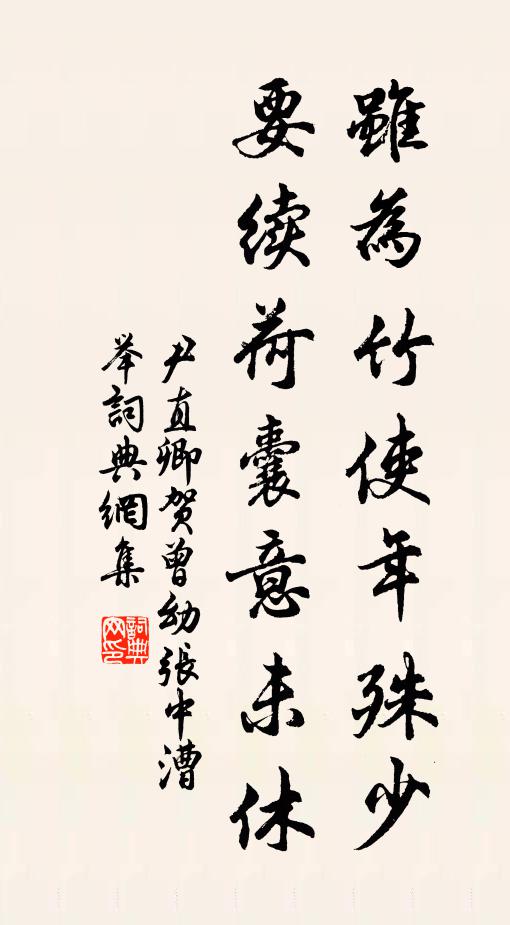 雖為竹使年殊少
要续荷囊意未休
尹直卿贺曾幼張中漕
举詞典網集
詞典网印